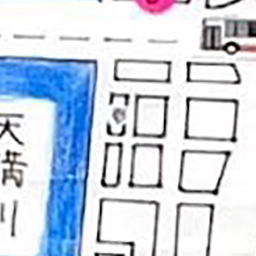 天満川